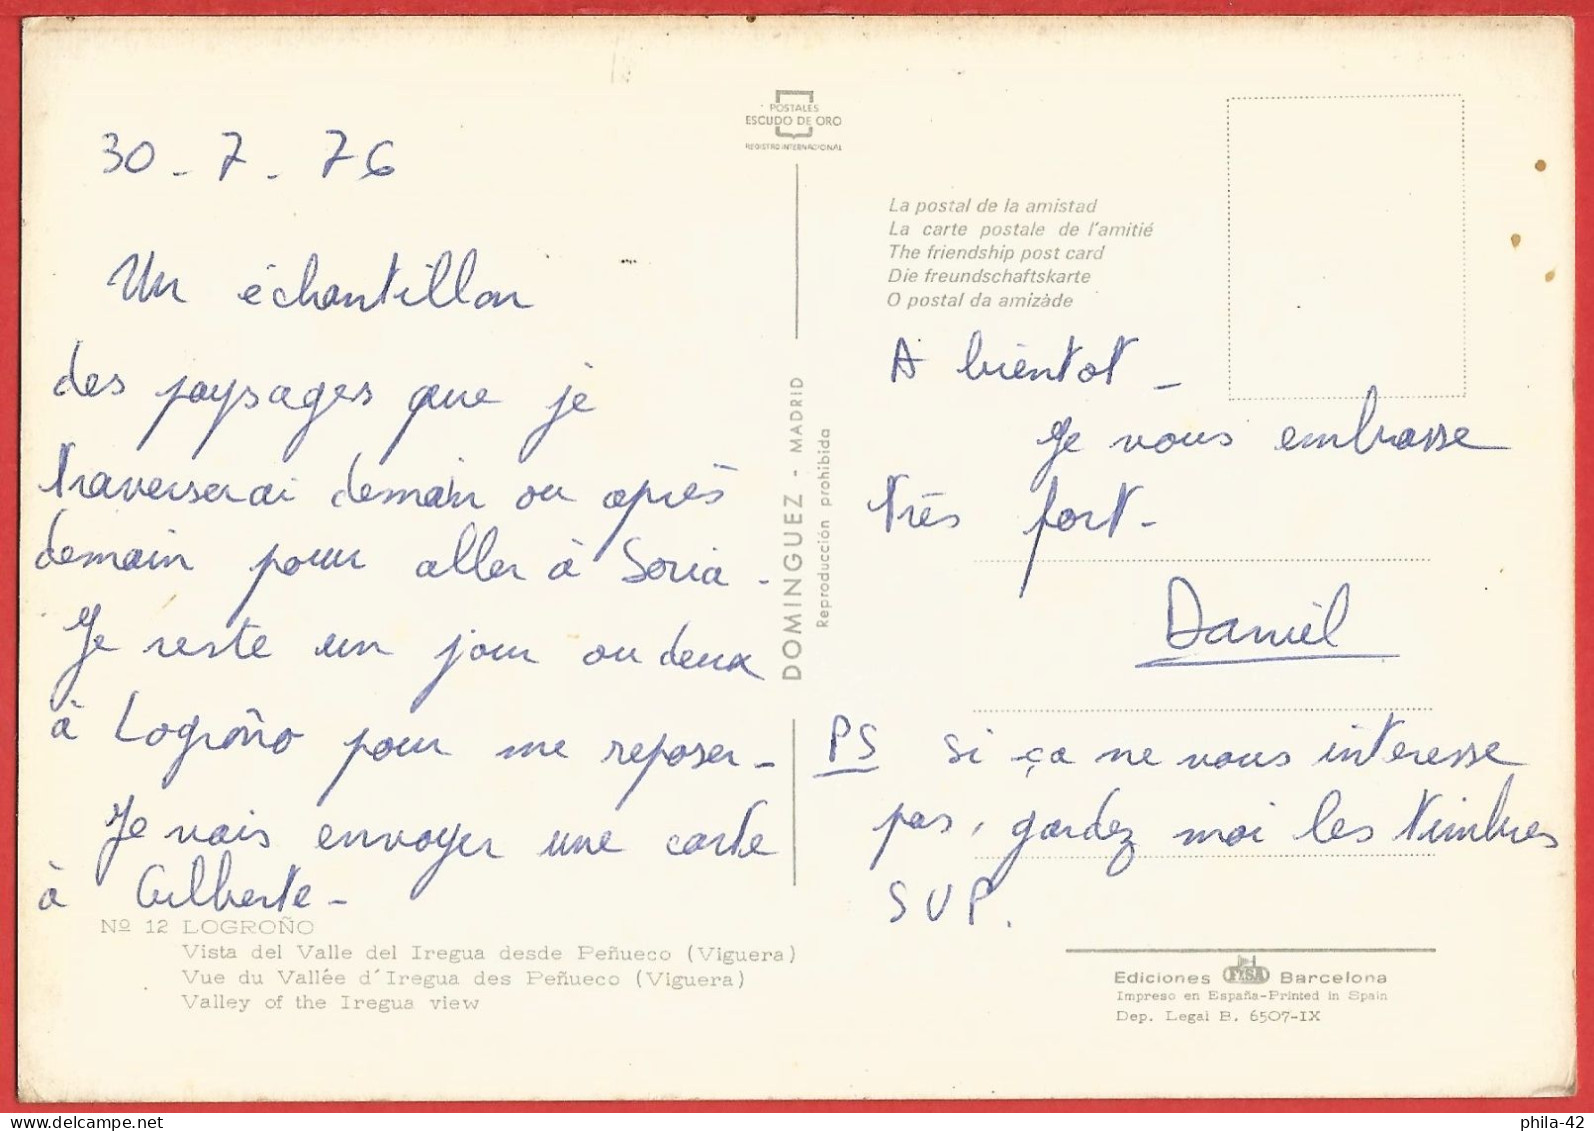 30 - 7 - 76
Un échantillon
des paysages que je
traverserai demain ou après
demain pour aller à Soria -
Je reste un jour ou deux
à Logroño pour me reposer -
Je vais envoyer une carte
à Gilberte -
Nº 12 LOGROÑO
Vista del Valle del Iregua desde Peñueco (Viguera)
Vue du Vallée d'Iregua des Peñueco (Viguera)
Valley of the Iregua view
POSTALES
ESCUDO DE ORO
REGISTRO INTERNACIONAL
DOMINGUEZ - MADRID
Reproducción prohibida
La postal de la amistad
La carte postale de l'amitié
The friendship post card
Die freundschaftskarte
O postal da amizàde
A bientot -
Je vous embrasse
très fort -
Daniel
PS si ça ne vous interesse
pas, gardez moi les timbres
SVP.
Ediciones FISA Barcelona
Impreso en España-Printed in Spain
Dep. Legal B. 6507-IX
phila-42